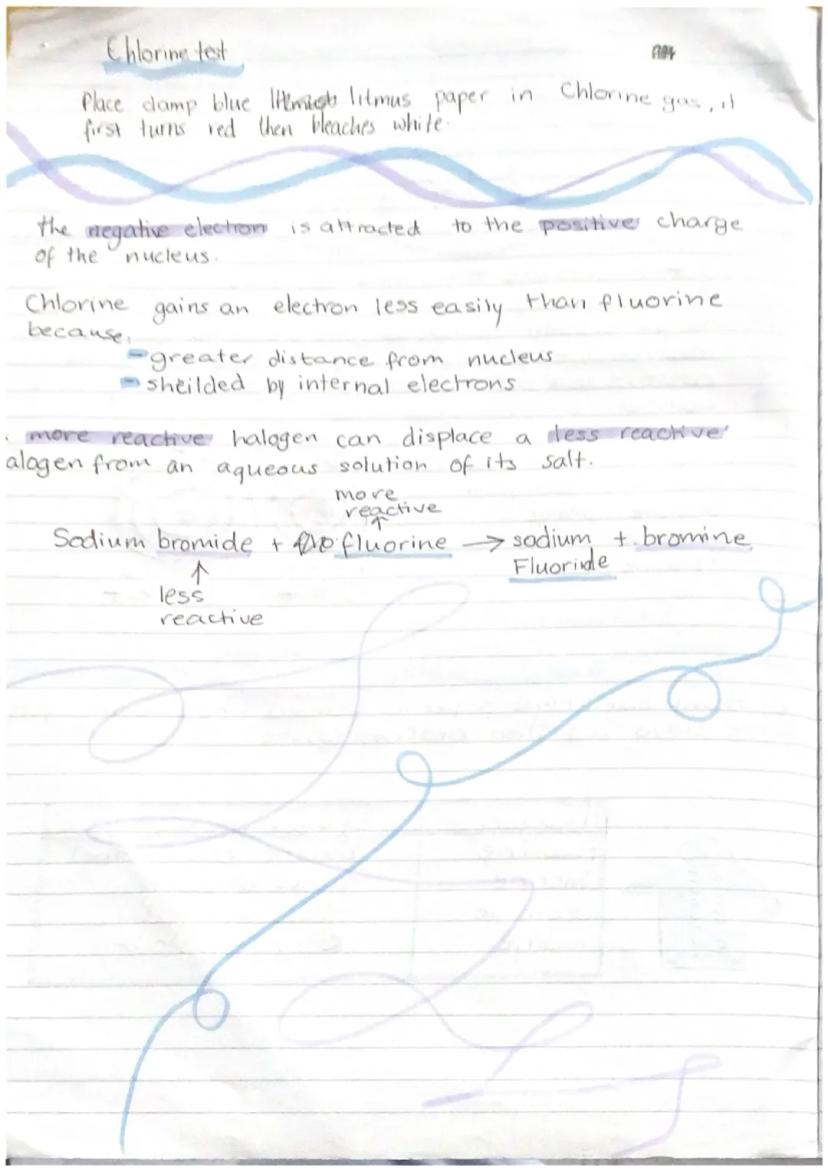 Chlorine test
Place damp blue litmus paper in Chlorine gas, it
first turns red then bleaches white.
the negative electron is attracted to the positive charge
of the nucleus.
Chlorine gains an electron less easily than fluorine
because,
- greater distance from nucleus
- sheilded by internal electrons
more reactive halogen can displace a less reactive
alogen from an aqueous solution of its salt.
more
reactive
Sodium bromide + fluorine → sodium + bromine
Fluoride
less
reactive